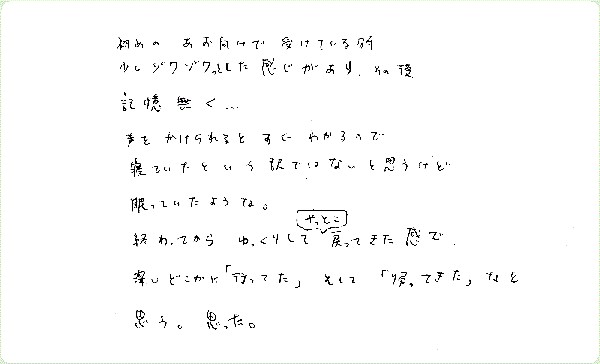 初めの あお向けで 受けている時
少しゾクゾクっとした 感じがあり、その後
記憶 無く...
声を かけられると すぐ わかるので
寝ていたという 訳ではないと思うけど
眠っていたような。
やっとこ
終わってから ゆっくりして 戻ってきた 感で、
深いどこかに「行ってた」 そして 「帰ってきた」なと
思う。思った。